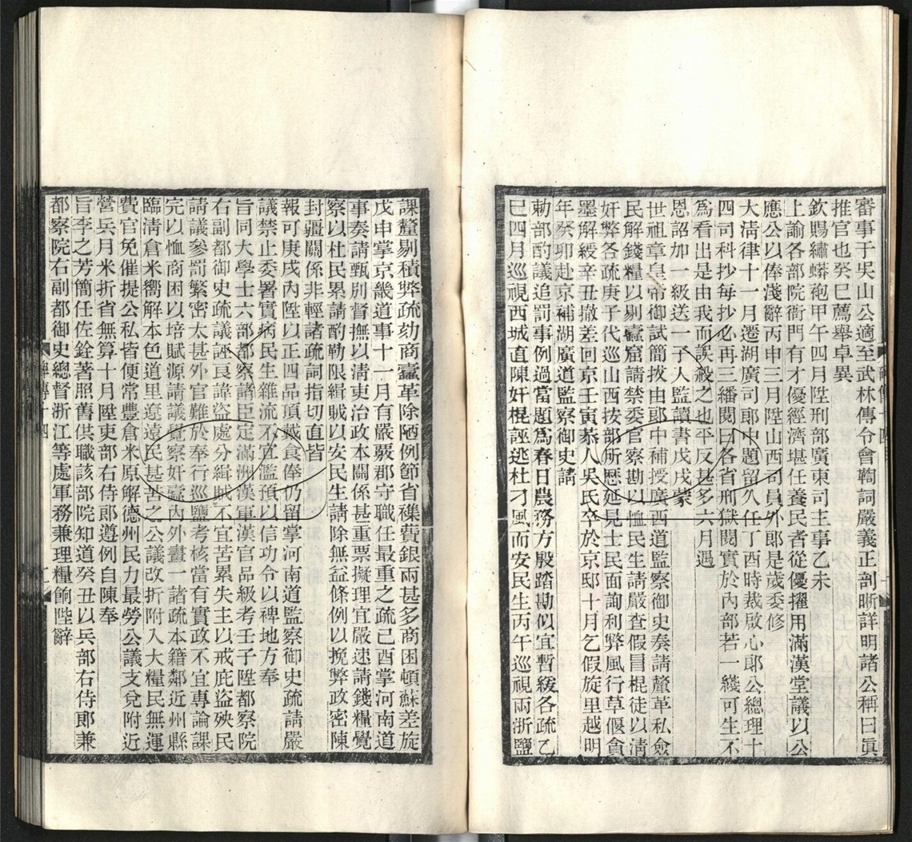 審事于吳山公適至武林傳令會鞫詞嚴義正剖晰詳明諸公稱曰眞
推官也癸巳薦舉卓異
欽賜繡蟒袍甲午四月陞刑部廣東司主事乙未
上諭各部院衙門有才優經濟堪任養民者從優擢用滿漢堂議以公
應公以俸淺辭丙申三月陞山西司員外郎是歲委修
大淸律十一月遷湖廣司郎中題留久任丁酉時裁啟心郎公總理十
四司科抄每抄必再三繙閱曰各省刑獄閱實於內部若一綫可生不
爲看出是由我而誤殺之也平反甚多六月遇
恩詔加一級送一子入監讀書戊戌蒙
世祖章皇帝御試簡拔由郎中補授廣西道監察御史奏請釐革私僉
民解錢糧以剔蠹窟請禁委官察勘以恤民生請嚴查假冒棍徒以淸
奸弊各疏庚子代巡山西按部所歷延見士民面詢利弊風行草偃貪
墨解綬辛丑撤差回京壬寅恭人吳氏卒於京邸十月乞假旋里越明
年癸卯赴京補湖廣道監察御史請
勅部酌議追罰事例過當題爲春日農務方殷踏勘似宜暫緩各疏乙
巳四月巡視西城直陳奸棍誣逃杜刁風而安民生丙午巡視兩浙鹽
課釐剔積弊疏劾商蠹革除陋例節省襍費銀兩甚多商困頓蘇差旋
戊申掌京畿道事十一月有嚴覈郡守職任最重之疏己酉掌河南道
事奏請甄別督撫以淸吏治政本關係甚重票擬理宜嚴速請錢糧覺
察以杜民累請酌勒限緝賊以安民生請除無益條例以挽弊政密陳
封疆關係非輕諸疏詞指切直皆
報可庚戌內陞以正四品頂戴食俸仍留掌河南道監察御史疏請嚴
議禁止委署實病民生雜流不宜濫預以信功令以裨地方奉
旨同大學士六部都察諸臣定滿洲漢軍漢官品級考壬子陞都察院
右副都御史疏議誣良諱盜處分緝賊不宜苦累失主以戒庇盜殃民
請議參罰繁密太甚外官難於奉行巡鹽考核當有實政不宜專論課
完以恤商困以培賦源請議覺察奸蠹內外畫一諸疏本籍鄰近州縣
臨淸倉米嚮解本色道里遼遠民甚苦之公議改折附入大糧民無運
費官免催提公私皆便常豐倉米原解德州民力最勞公議支兌附近
營兵月米折省無算十月陞吏部右侍郎遵例自陳奉
旨李之芳簡任佐銓著照舊供職該部院知道癸丑以兵部右侍郎兼
都察院右副都御史總督浙江等處軍務兼理糧餉陛辭